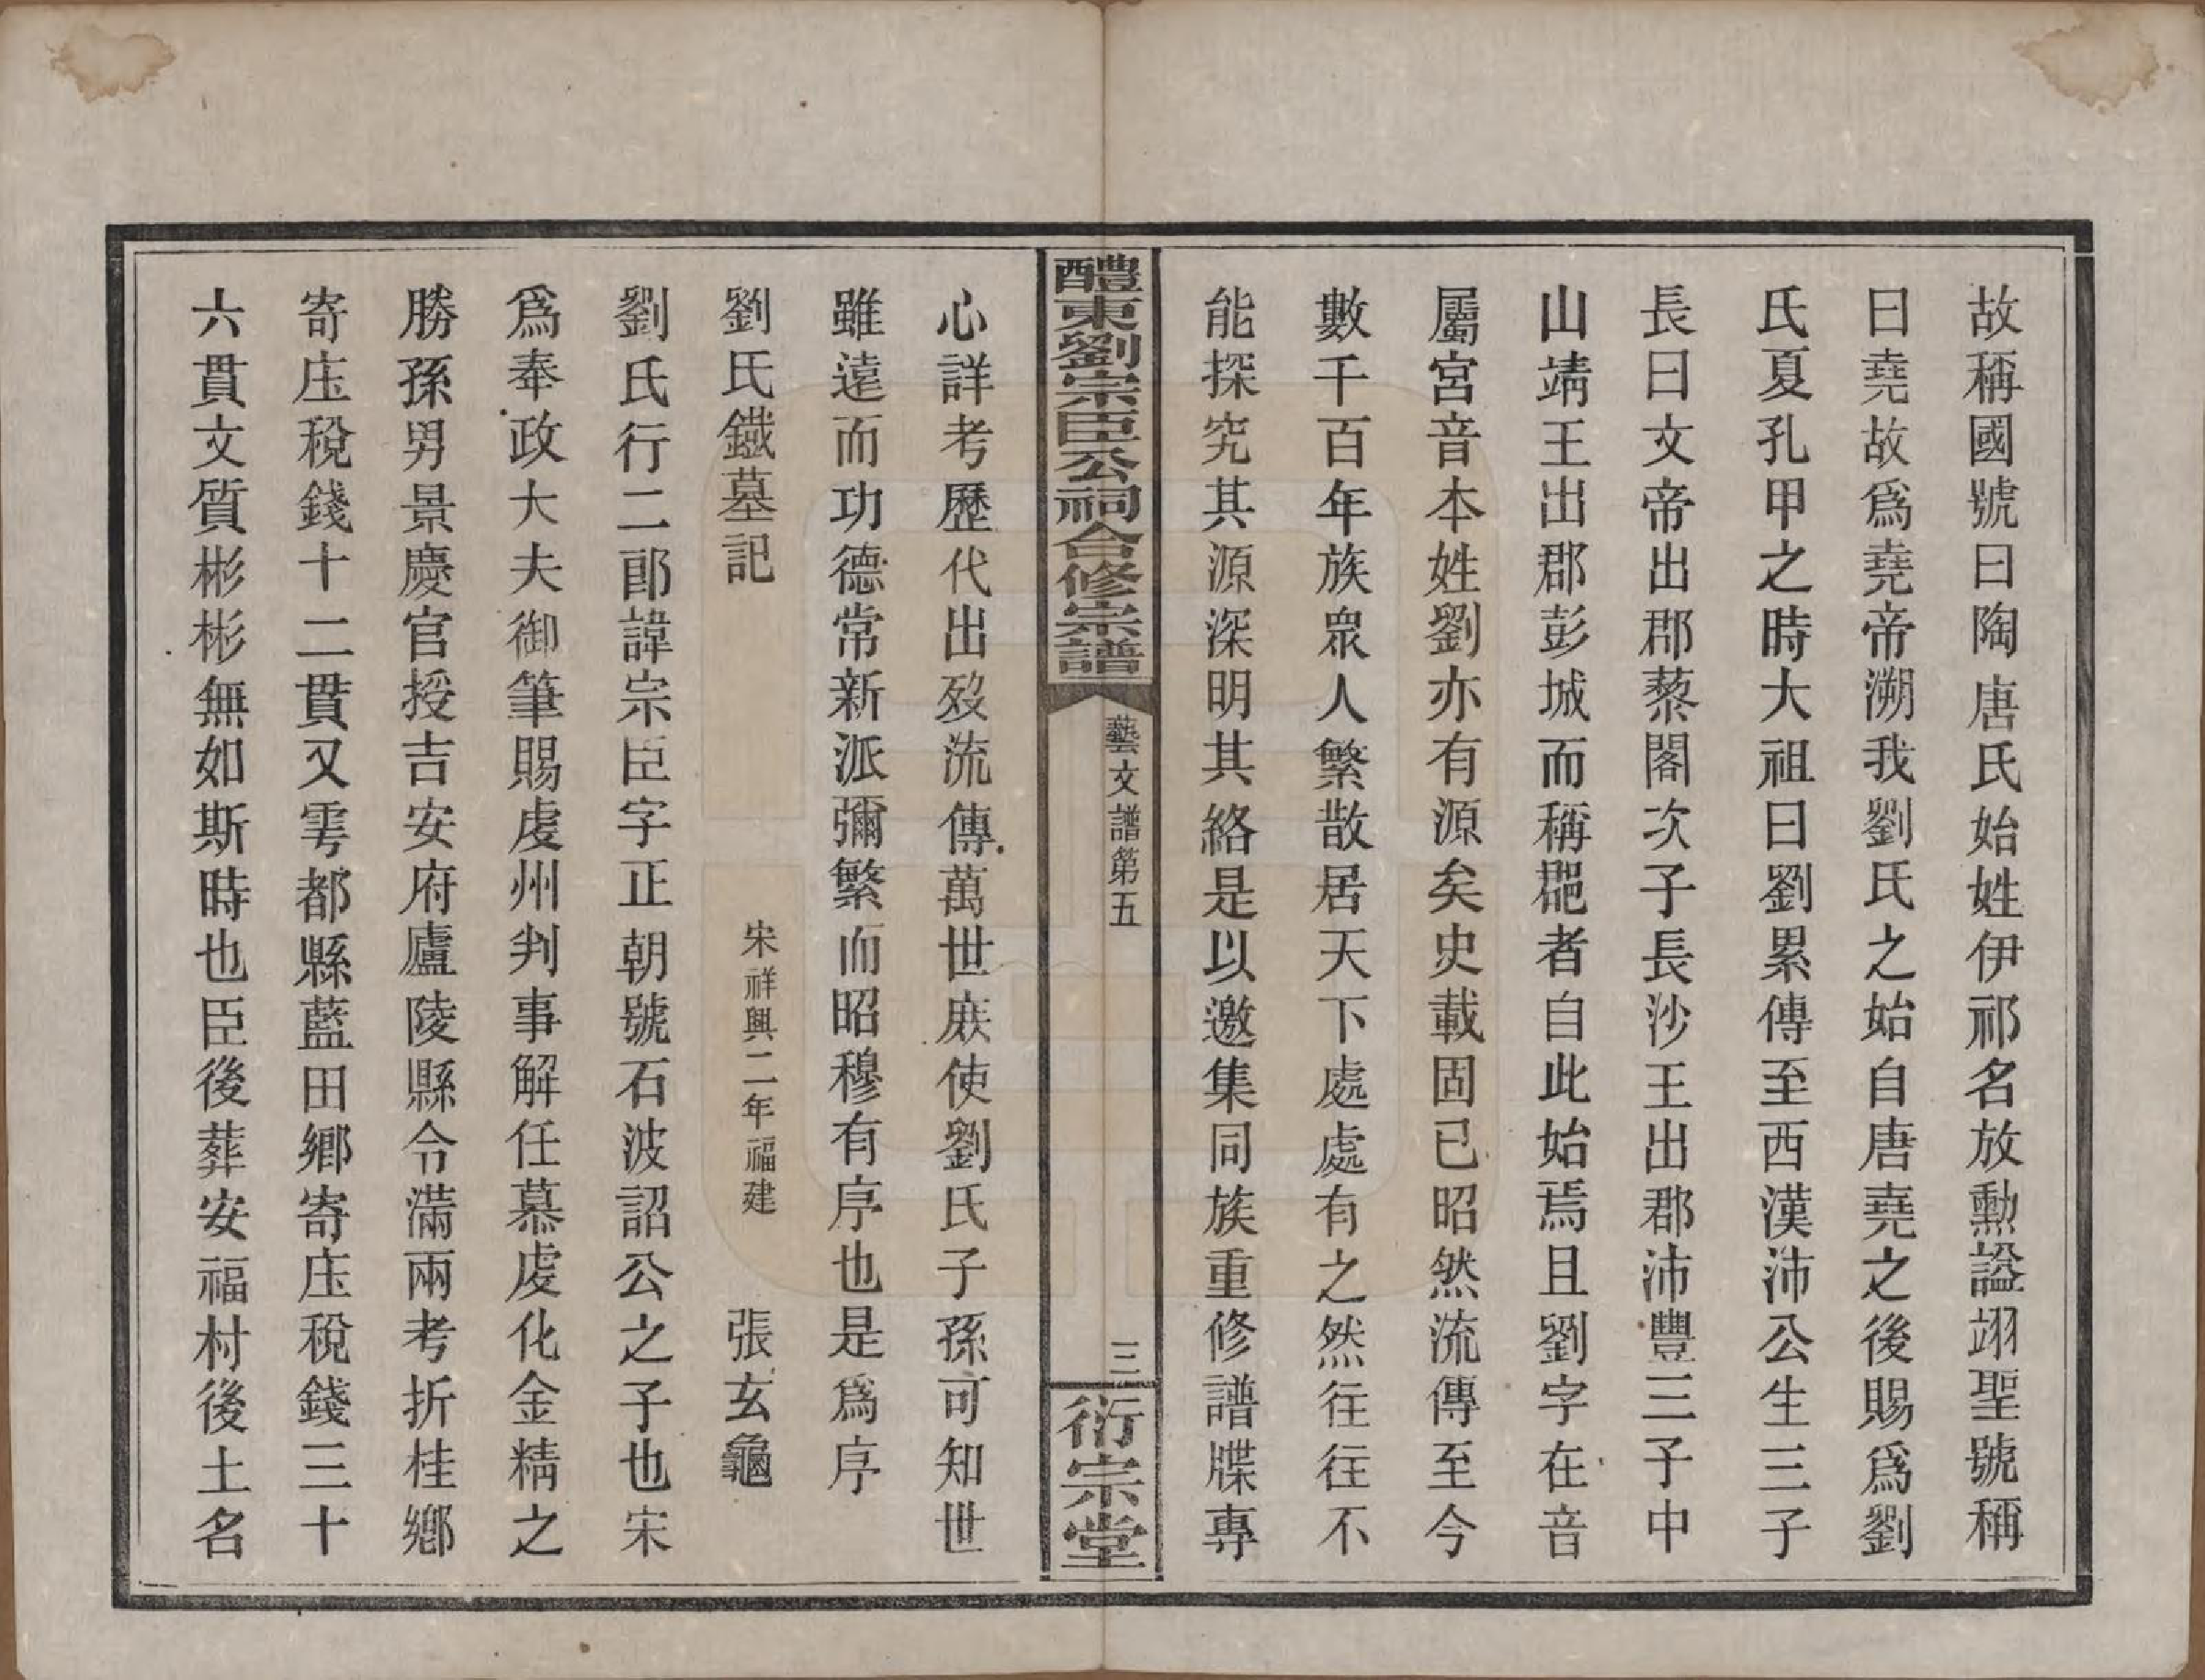 故稱國號曰陶唐氏始姓伊祁名放勳謚翊聖號稱
曰堯故爲堯帝溯我劉氏之始自唐堯之後賜爲劉
氏夏孔甲之時大祖曰劉累傳至西漢沛公生三子
長曰文帝出郡藜閣次子長沙王出郡沛豐三子中
山靖王出郡彭城而稱郡者自此始焉且劉字在音
屬宮音本姓劉亦有源矣史載固已昭然流傳至今
數千百年族衆人繁散居天下處處有之然往往不
能探究其源深明其絡是以邀集同族重修譜牒專
醴東劉宗臣公祠合修宗譜
藝文譜第五
三
衍宗堂
心詳考歷代出歿流傳萬世庶使劉氏子孫可知世
雖遠而功德常新派彌繁而昭穆有序也是爲序
劉氏鐵墓記 宋祥興二年福建 張玄龜
劉氏行二郎諱宗臣字正朝號石波詔公之子也宋
爲奉政大夫御筆賜虔州判事解任慕虔化金精之
勝孫男景慶官授吉安府廬陵縣令滿兩考折桂鄉
寄庄稅錢十二貫又雩都縣藍田鄉寄庄稅錢三十
六貫文質彬彬無如斯時也臣後葬安福村後土名